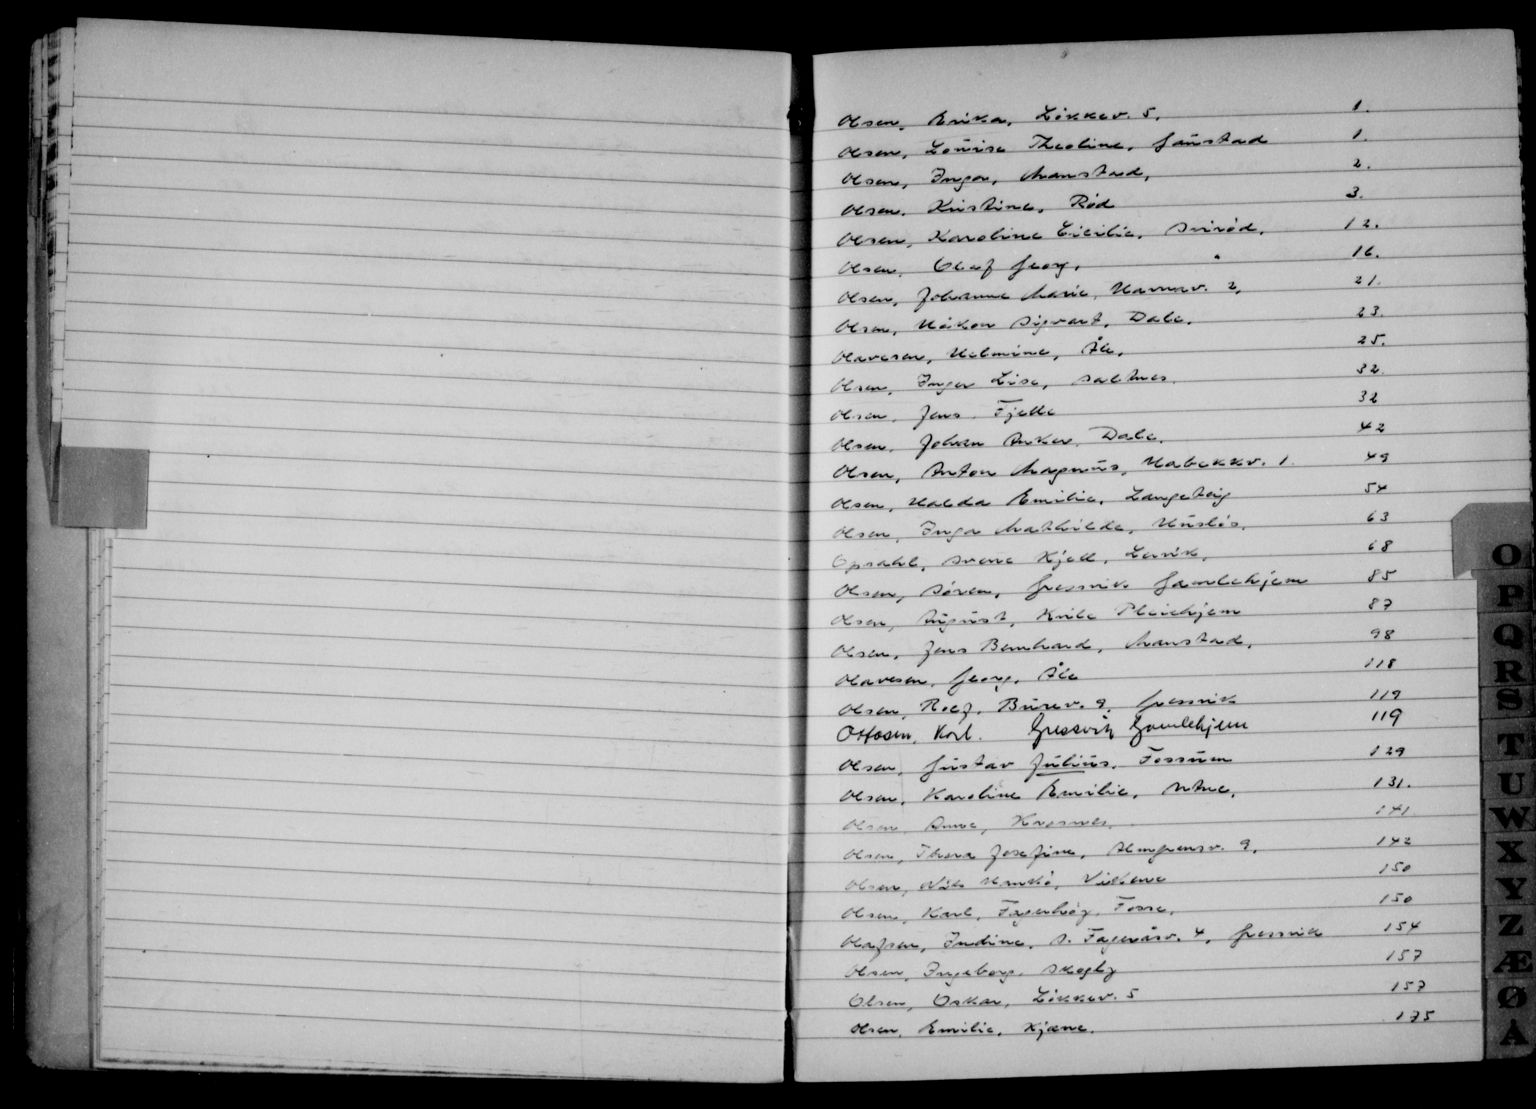 Olsen, Erika, Løkkev. 5. 1.
Olsen, Louise Theoline, Gaustad 1.
Olsen, Inga, Manstad, 2.
Olsen, Kristine, Rød 3.
Olsen, Karoline Cicilie, 12.
Olsen, Olaf Georg, " 16.
Olsen, Johanne Marie, Havnev. 2, 21.
Olsen, Håkon Sigvart, Dale. 23.
Olavesen, Helmine, Åle, 25.
Olsen, Inger Lise, Saltnes. 32.
Olsen, Jens, Fjelle 32
Olsen, Johan Anker, Dale. 42
Olsen, Anton Magnus, Habekkv. 1. 49
Olsen, Halda Emilie, Langeteig 54
Olsen, Inga Mathilde, Husløs. 63
Opsahl, Svend Kjell, Lervik. 68
Olsen, Søren, Gressvik Gamlehjem 85
Olsen, August, Hvile Pleiehjem 87
Olsen, Jens Bernhard, Manstad, 98
Olavesen, Georg, Åle 118
Olsen, Rolf, Burev. 9, Gressvik 119
Ottosen, Karl. Gressvik Gamlehjem 119
Olsen, Gustav Julius, Fossum 129
Olsen, Karoline Emilie, Utne, 131.
Olsen, Anne, 141.
Olsen, Thora Josefine, 9. 142
Olsen, Nils Vikane 150
Olsen, Karl, Fagerhøg, Fosse, 150
Olafsen, Indine, S. Fageråsv. 4, Gressvik 154
Olsen, Ingeborg, Skogly 157
Olsen, Oskar, Løkkev. 5 157
Olsen, Emilie, Kjære. 175
O
P
Q
R
S
T
U
W
X
Y
Z
Æ
Ø
Å